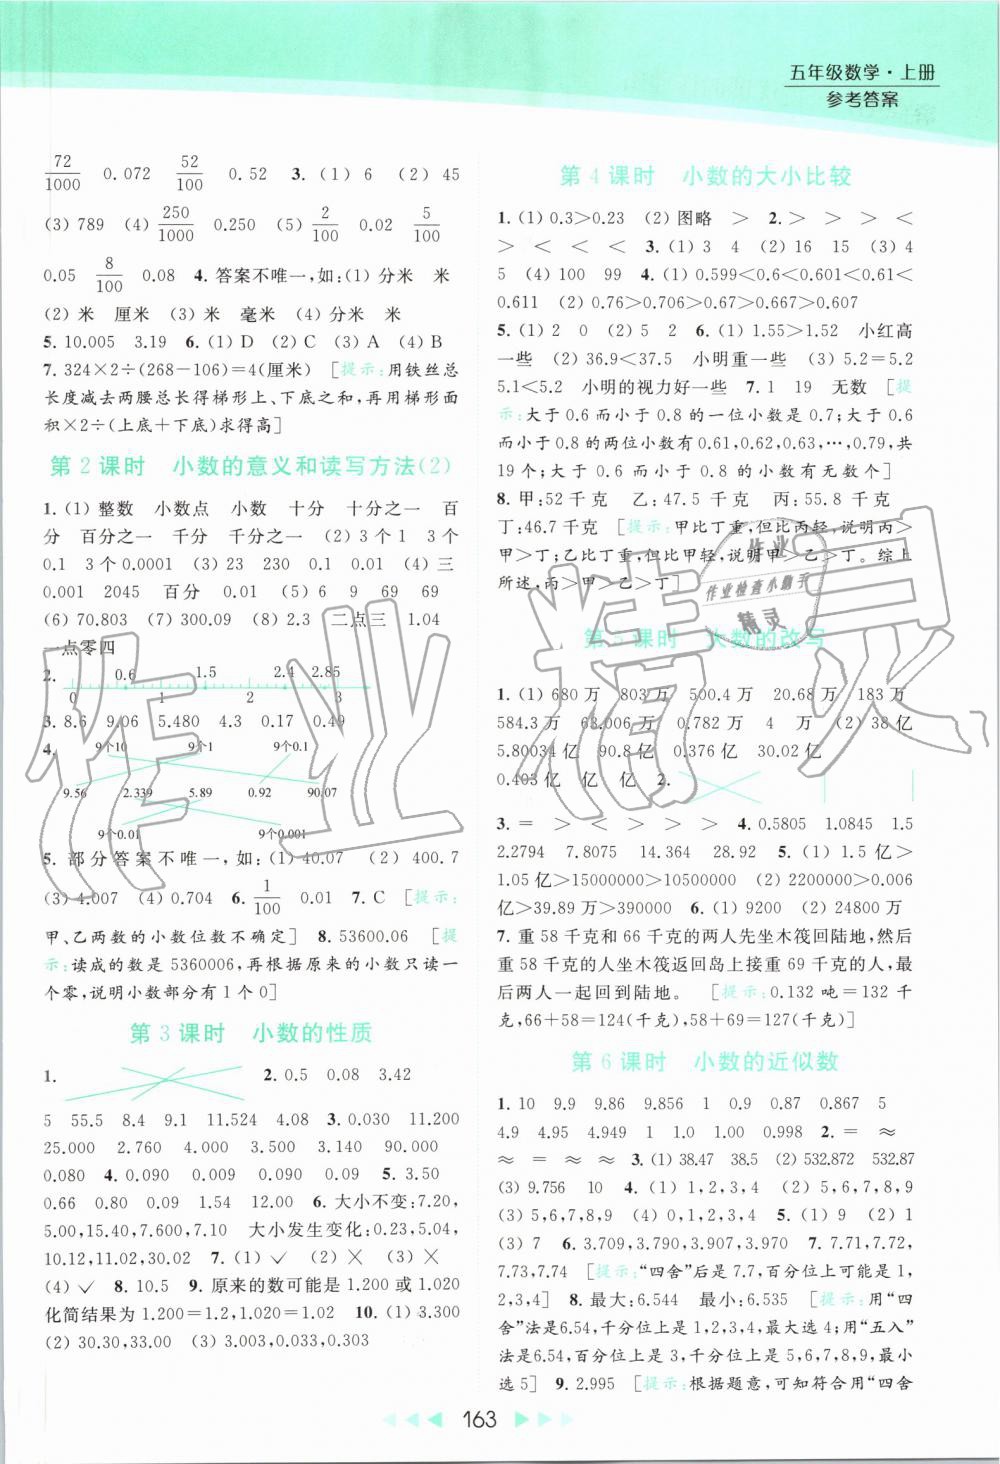 五年级数学·上册
参考答案
72/1000 0.072 52/100 0.52 3.(1) 6 (2) 45
(3) 789 (4) 250/1000 0.250 (5) 2/100 0.02 5/100
0.05 8/100 0.08 4. 答案不唯一,如:(1) 分米 米
(2) 米 厘米 (3) 米 毫米 (4) 分米 米
5. 10.005 3.19 6.(1) D (2) C (3) A (4) B
7. 324×2÷(268-106)=4(厘米) [提示:用铁丝总
长度减去两腰总长得梯形上、下底之和,再用梯形面
积×2÷(上底+下底)求得高]
第2课时 小数的意义和读写方法(2)
1.(1) 整数 小数点 小数 十分 十分之一 百
分 百分之一 千分 千分之一 (2) 3个1 3个
0.1 3个0.0001 (3) 23 230 0.1 0.01 (4) 三
0.001 2045 百分 0.01 (5) 6 9 69 69
(6) 70.803 (7) 300.09 (8) 2.3 二点三 1.04
一点零四
2. 0.6 1.5 2.4 2.85
0 1 2 3
3. 8.6 9.06 5.480 4.3 0.17 0.49
4. 9个10 9个1 9个0.1
9.56 2.339 5.89 0.92 90.07
9个0.01 9个0.001
5. 部分答案不唯一,如:(1) 40.07 (2) 400.7
(3) 4.007 (4) 0.704 6. 1/100 0.01 7. C [提示:
甲、乙两数的小数位数不确定] 8. 53600.06 [提
示:读成的数是5360006,再根据原来的小数只读一
个零,说明小数部分有1个0]
第3课时 小数的性质
1. 2. 0.5 0.08 3.42
5 55.5 8.4 9.1 11.524 4.08 3. 0.030 11.200
25.000 2.760 4.000 3.500 3.140 90.000
0.080 4. 0.090 0.009 0.900 0.090 5. 3.50
0.66 0.80 0.09 1.54 12.00 6. 大小不变:7.20,
5.00,15.40,7.600,7.10 大小发生变化:0.23,5.04,
10.12,11.02,30.02 7.(1) ✓ (2) × (3) ×
(4) ✓ 8. 10.5 9. 原来的数可能是1.200或1.020
化简结果为1.200=1.2,1.020=1.02 10.(1) 3.300
(2) 30.30,33.00 (3) 3.003,0.033,0.303
第4课时 小数的大小比较
1.(1) 0.3>0.23 (2) 图略 > 2. > > > <
> < < < 3.(1) 3 4 (2) 16 15 (3) 4
5 (4) 100 99 4.(1) 0.599<0.6<0.601<0.61<
0.611 (2) 0.76>0.706>0.67>0.667>0.607
5.(1) 2 0 (2) 5 2 6.(1) 1.55>1.52 小红高
一些 (2) 36.9<37.5 小明重一些 (3) 5.2=5.2
5.1<5.2 小明的视力好一些 7. 1 19 无数 [提
示:大于0.6而小于0.8的一位小数是0.7;大于0.6
而小于0.8的两位小数有0.61,0.62,0.63,…,0.79,共
19个;大于0.6而小于0.8的小数有无数个]
8. 甲:52千克 乙:47.5千克 丙:55.8千克
丁:46.7千克 [提示:甲比丁重,但比丙轻,说明丙>
甲>丁;乙比丁重,但比甲轻,说明甲>乙>丁。综上
所述,丙>甲>乙>丁]
第5课时 大数的改写
1.(1) 680万 803万 500.4万 20.68万 183万
584.3万 63.006万 0.782万 4 万 (2) 38亿
5.80034亿 90.8亿 0.376亿 30.02亿
0.403亿 亿 亿 2.
3. = > < > > > 4. 0.5805 1.0845 1.5
2.2794 7.8075 14.364 28.92 5.(1) 1.5亿>
1.05亿>15000000>10500000 (2) 2200000>0.006
亿>39.89万>390000 6.(1) 9200 (2) 24800万
7. 重58千克和66千克的两人先坐木筏回陆地,然后
重58千克的人坐木筏返回岛上接重69千克的人,最
后两人一起回到陆地。 [提示:0.132吨=132千
克,66+58=124(千克),58+69=127(千克)]
第6课时 小数的近似数
1. 10 9.9 9.86 9.856 1 0.9 0.87 0.867 5
4.9 4.95 4.949 1 1.0 1.00 0.998 2. = ≈
≈ = ≈ ≈ 3.(1) 38.47 38.5 (2) 532.872 532.87
(3) 9.756 10 4.(1) 1,2,3,4 (2) 5,6,7,8,9
(3) 5,6,7,8,9 (4) 0,1,2,3,4 5.(1) 9 (2) 1
(3) 7 6. 3.709,3.790,3.907,3.970 7. 7.71,7.72,
7.73,7.74 [提示:“四舍”后是7.7,百分位上可能是1,
2,3,4] 8. 最大:6.544 最小:6.535 [提示:用“四
舍”法是6.54,千分位上是1,2,3,4,最大选4;用“五入”
法是6.54,百分位上是3,千分位上是5,6,7,8,9,最小
选5] 9. 2.995 [提示:根据题意,可知符合用“四舍
163
作业精灵
作业
作业检查小助手
精灵